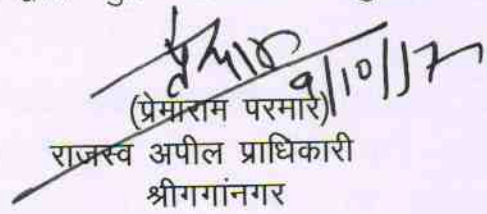 9/10/17
(प्रेमाराम परमार)
राजस्व अपील प्राधिकारी
श्रीगगांनगर